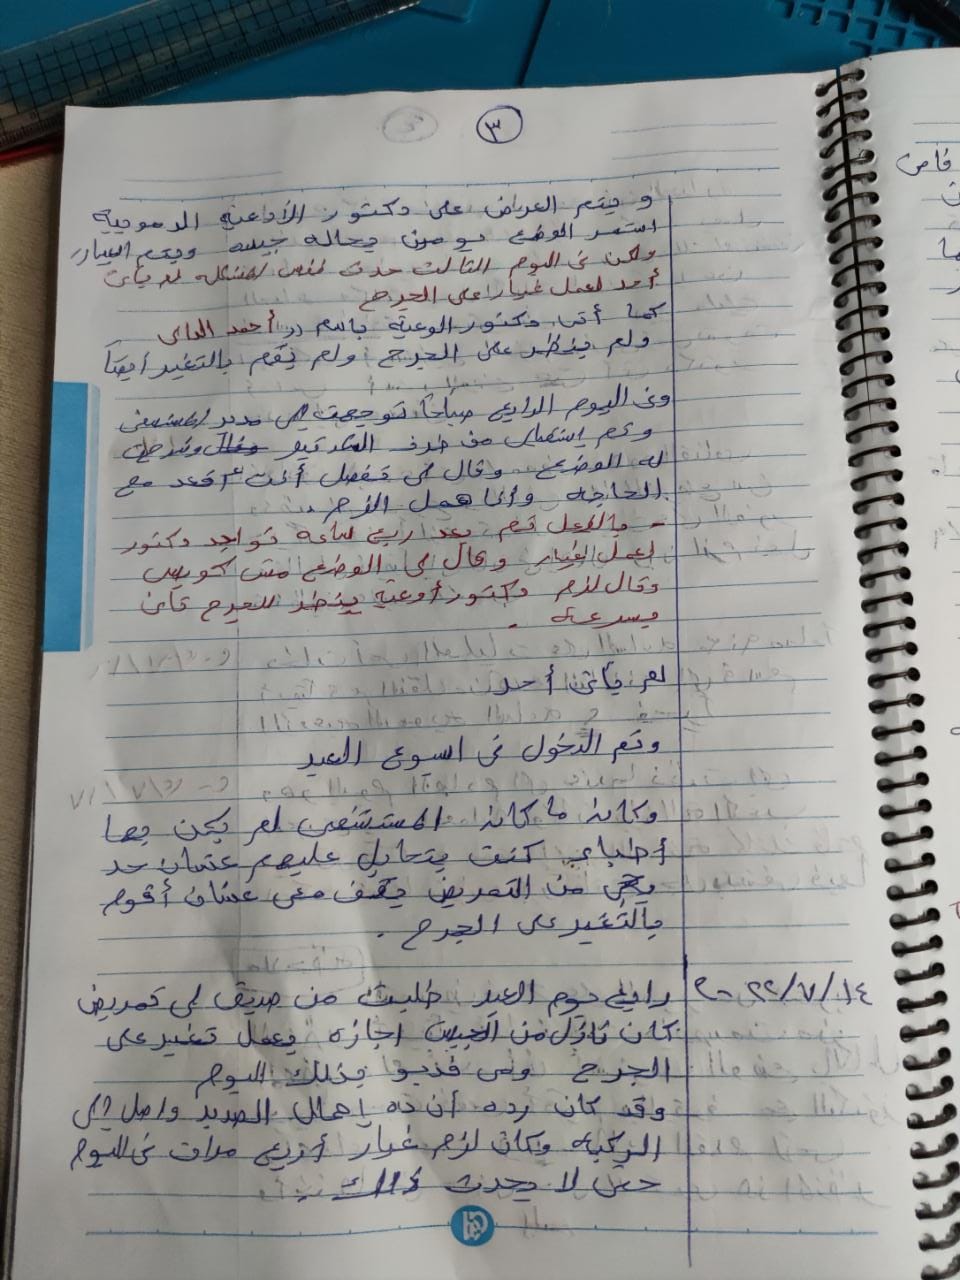 ٣
و يتم العرض على دكتور الأوعية الدموية
استمر الوضع يومين بحاله جيده ويتم الغيار
ولكن فى اليوم الثالث حدث نفس المشكله لم يأتى
أحد لعمل غيار على الجرح
كما أتى دكتور الاوعية باسم د/ أحمد
ولم ينظر على الجرح ولم يقم بالتغير أيضاً
وفى اليوم الرابع صباحاً توجهت الى مدير المستشفى
وتم استقبالى من طرف وشرحت
له الوضع وقال لى تفضل أنت أقعد مع
الحاجه وانا هعمل اللازم
- بالفعل تم بعد ربع ساعة تواجد دكتور
لعمل الغيار وقال لى الوضع مش كويس
وقال لازم دكتور أوعية ينظر للجرح تانى
بسرعه .
لم يأتى أحد
وتم الدخول فى اسبوع العيد
وكانه ما كانه المستشفى لم يكن بها
أطباء كنت بتحايل عليهم عشان حد
يجى من التمريض يقف معى عشان أقوم
بالتغير على الجرح .
١٤/٧/٢٠٢٢ رابع يوم العيد طلبت من صديق لى تمريض
كان نازل من الجيش اجازه يعمل تغير على
الجرح وهى بذلك اليوم
وقد كان رده أن ده إهمال الصديد واصل الى
الركبه وكان لازم غيار أربع مرات فى اليوم
حتى لا يحدث ذلك
فاص